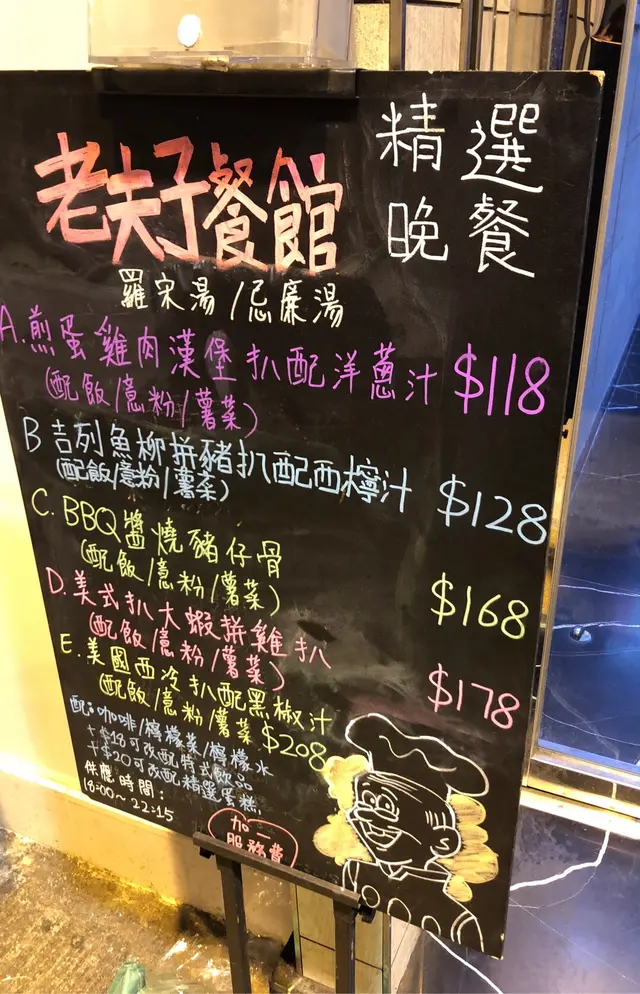 老夫子餐館
精選
晚餐
羅宋湯/忌廉湯
A.煎蛋雞肉漢堡扒配洋蔥汁 $118
(配飯/意粉/薯菜)
B 吉列魚柳拼豬扒配西檸汁 $128
(配飯/意粉/薯菜)
C. BBQ醬燒豬仔骨 $168
(配飯/意粉/薯菜)
D.美式扒大蝦拼雞扒 $178
(配飯/意粉/薯菜)
E.美國西冷扒配黑椒汁
(配飯/意粉/薯菜) $208
配:咖啡/檸檬茶/檸檬水
+$18可改配特式飲品
+$20可改配精選蛋糕.
供應時間:
18:00~22:15
加一
服務費